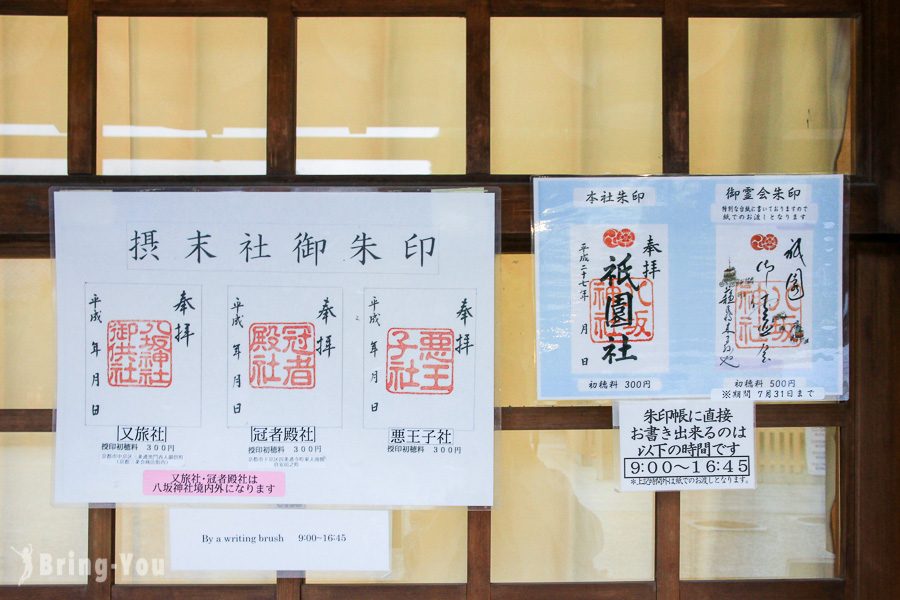 摂末社御朱印
奉拝
平成 年 月 日
八坂神社
御供社
又旅社
授印初穂料 300円
奉拝
平成 年 月 日
冠者
殿社
冠者殿社
授印初穂料 300円
奉拝
平成 年 月 日
悪王
子社
悪王子社
授印初穂料 300円
又旅社・冠者殿社は
八坂神社境内外になります
By a writing brush 9:00~16:45
本社朱印
奉拝
祇園社
八坂
神社
平成二十七年 月 日
初穂料 300円
御霊会朱印
特別な台紙に書いておりますので
紙でのお渡しとなります
祇園
初穂料 500円
※期間 7月31日まで
朱印帳に直接
お書き出来るのは
以下の時間です
9:00~16:45
※上記時間外は紙でのお渡しとなります。
Bring-You